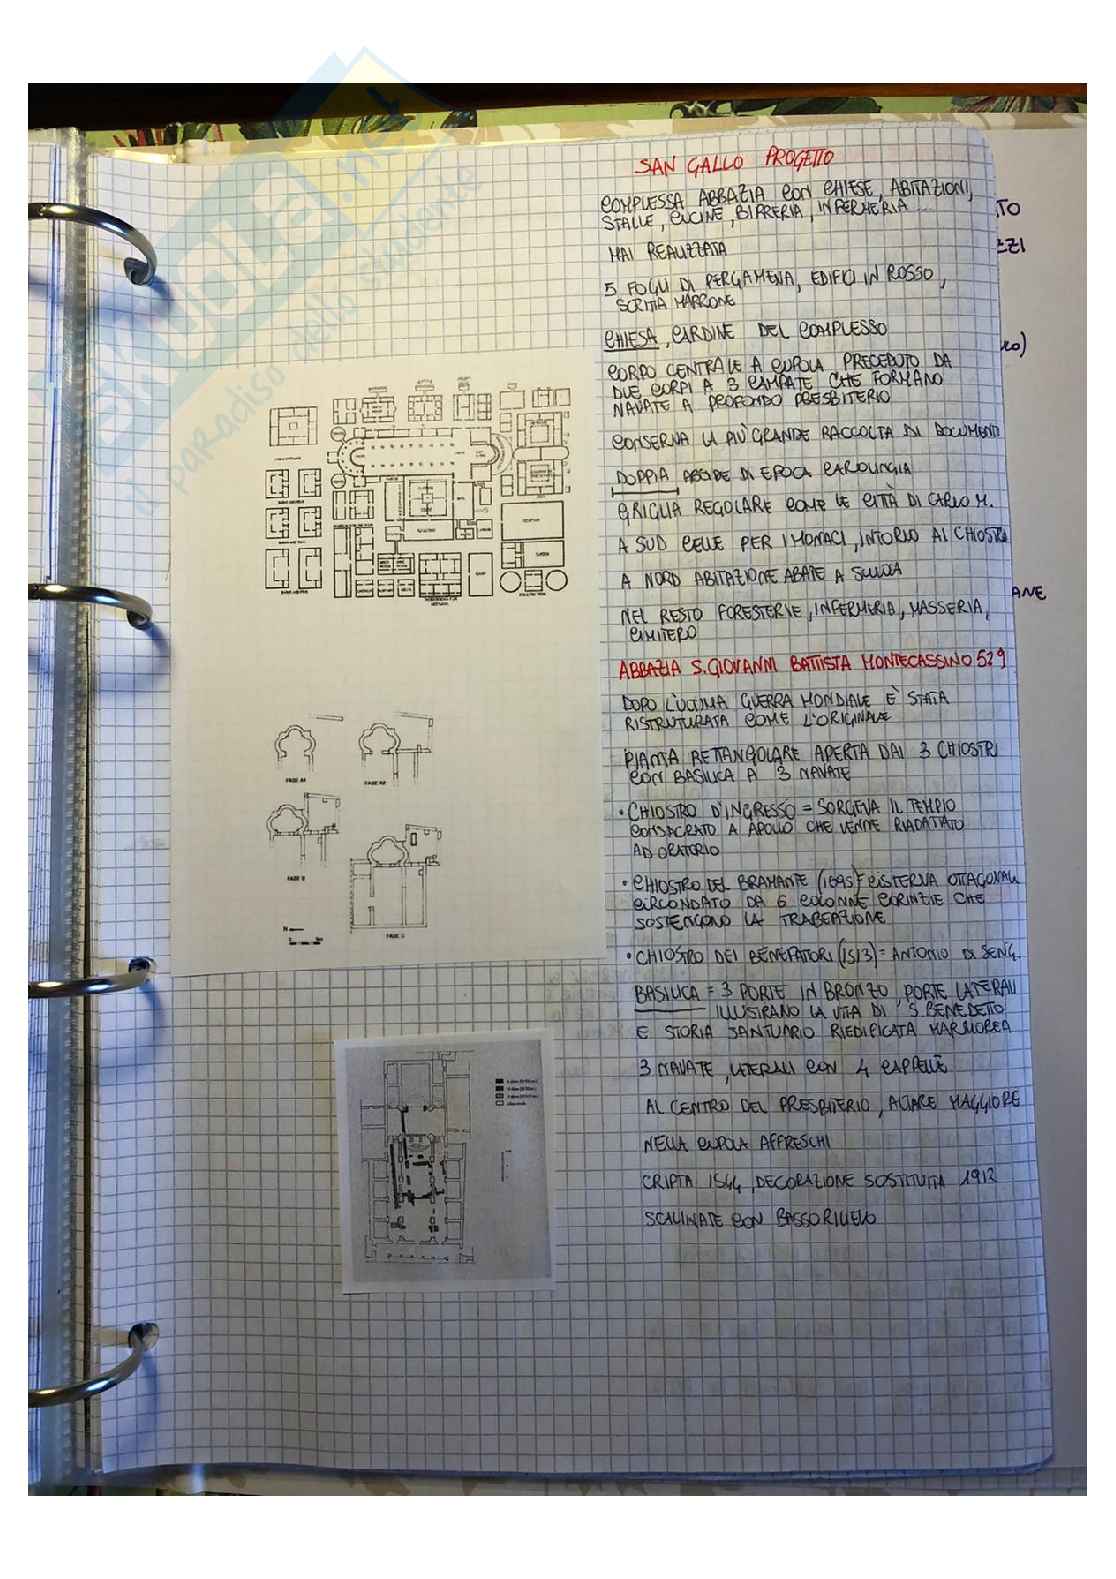 SAN GALLO PROGETTO
COMPLESSA ABBAZIA CON CHIESE, ABITAZIONI,
STALLE, CUCINE, BIRRERIA, INFERMERIA
MAI REALIZZATA
5 FOGLI DI PERGAMENA, EDIFICI IN ROSSO,
SCRITTA MARRONE
CHIESA, CARDINE DEL COMPLESSO
CORPO CENTRALE A CUPOLA PRECEDUTO DA
DUE CORPI A 3 CAMPATE CHE FORMANO
NAVATE A PROFONDO PRESBITERIO
CONSERVA LA PIÙ GRANDE RACCOLTA DI DOCUMENTI
DOPPIA ABSIDE DI EPOCA CAROLINGIA
GRIGLIA REGOLARE COME LE CITTÀ DI CARLO M.
A SUD CELLE PER I MONACI, INTORNO AL CHIOSTRO
A NORD ABITAZIONE ABATE A SCUOLA
NEL RESTO FORESTERIE, INFERMERIA, MASSERIA,
CIMITERO
ABBAZIA S.GIOVANNI BATTISTA MONTECASSINO 529
DOPO L'ULTIMA GUERRA MONDIALE È STATA
RISTRUTURATA COME L'ORIGINALE
PIANTA RETTANGOLARE APERTA DAI 3 CHIOSTRI
CON BASILICA A 3 NAVATE
• CHIOSTRO D'INGRESSO = SORGEVA IL TEMPIO
CONSACRATO A APOLLO CHE VENNE RIADATTATO
AD ORATORIO
• CHIOSTRO DEL BRAMANTE (1595) = CISTERNA OTTAGONALE
CIRCONDATO DA 6 COLONNE CORINZIE CHE
SOSTENGONO LA TRABEAZIONE
• CHIOSTRO DEI BENEFATORI (1513) = ANTONIO DI SENG.
BASILICA = 3 PORTE IN BRONZO, PORTE LATERALI
ILLUSTRANO LA VITA DI S BENEDETTO
E STORIA SANTUARIO RIEDIFICATA MARMOREA
3 NAVATE, LATERALI CON 4 CAPPELLE
AL CENTRO DEL PRESBITERIO, ALTARE MAGGIORE
NELLA CUPOLA AFFRESCHI
CRIPTA 1544, DECORAZIONE SOSTITUITA 1912
SCALINATE CON BASSORILIEVO
FASE A1
FASE A2
FASE B
FASE C
N
skuola.net
il paradiso dello studente